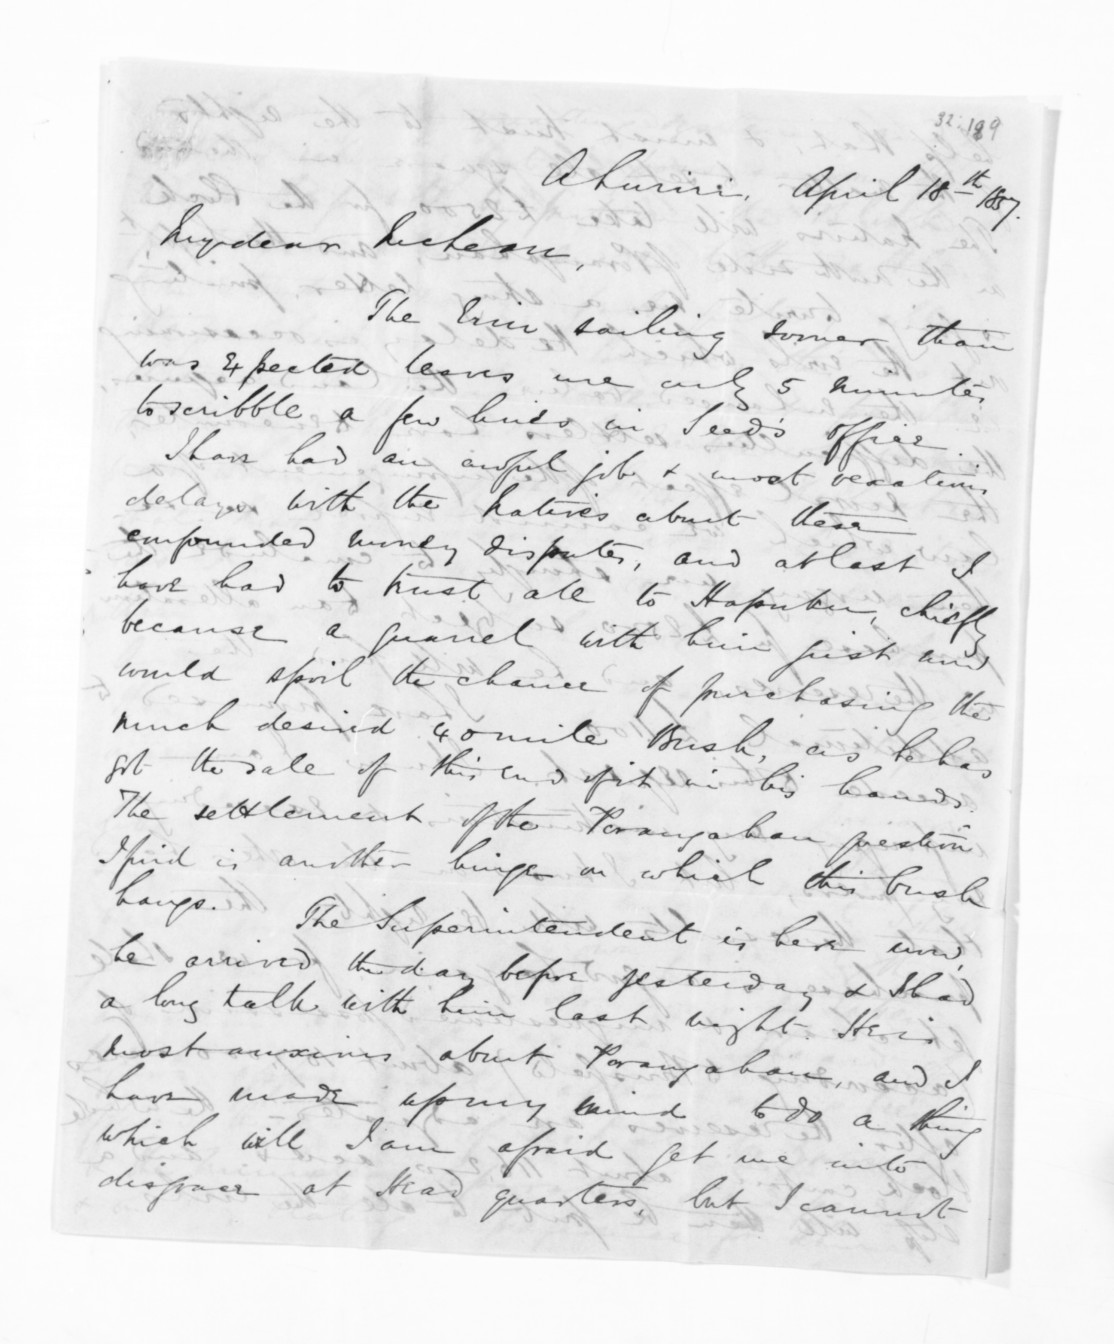 32:199
Ahuriri, April 18th 1857.
My dear McLean,
The Erin sailing sooner than
was expected leaves me only 5 minutes
to scribble a few lines in Seed's office
I have had an awful job & most vexatious
delays with the Natives about these
confounded money disputes, and at last I
have had to trust all to Hapuku, chiefly
because a quarrel with him just now
would spoil the chance of purchasing the
much desired 40 mile Bush, as he has
got the sale of this end of it in his hands.
The settlement of the Porangahau question
I find is another hinge on which this bush
hangs. The Superintendent is here now,
he arrived the day before yesterday & I had
a long talk with him last night. He is
most anxious about Porangahau, and I
have made up my mind to do a thing
which will I am afraid get me into
disgrace at Head quarters, but I cannot